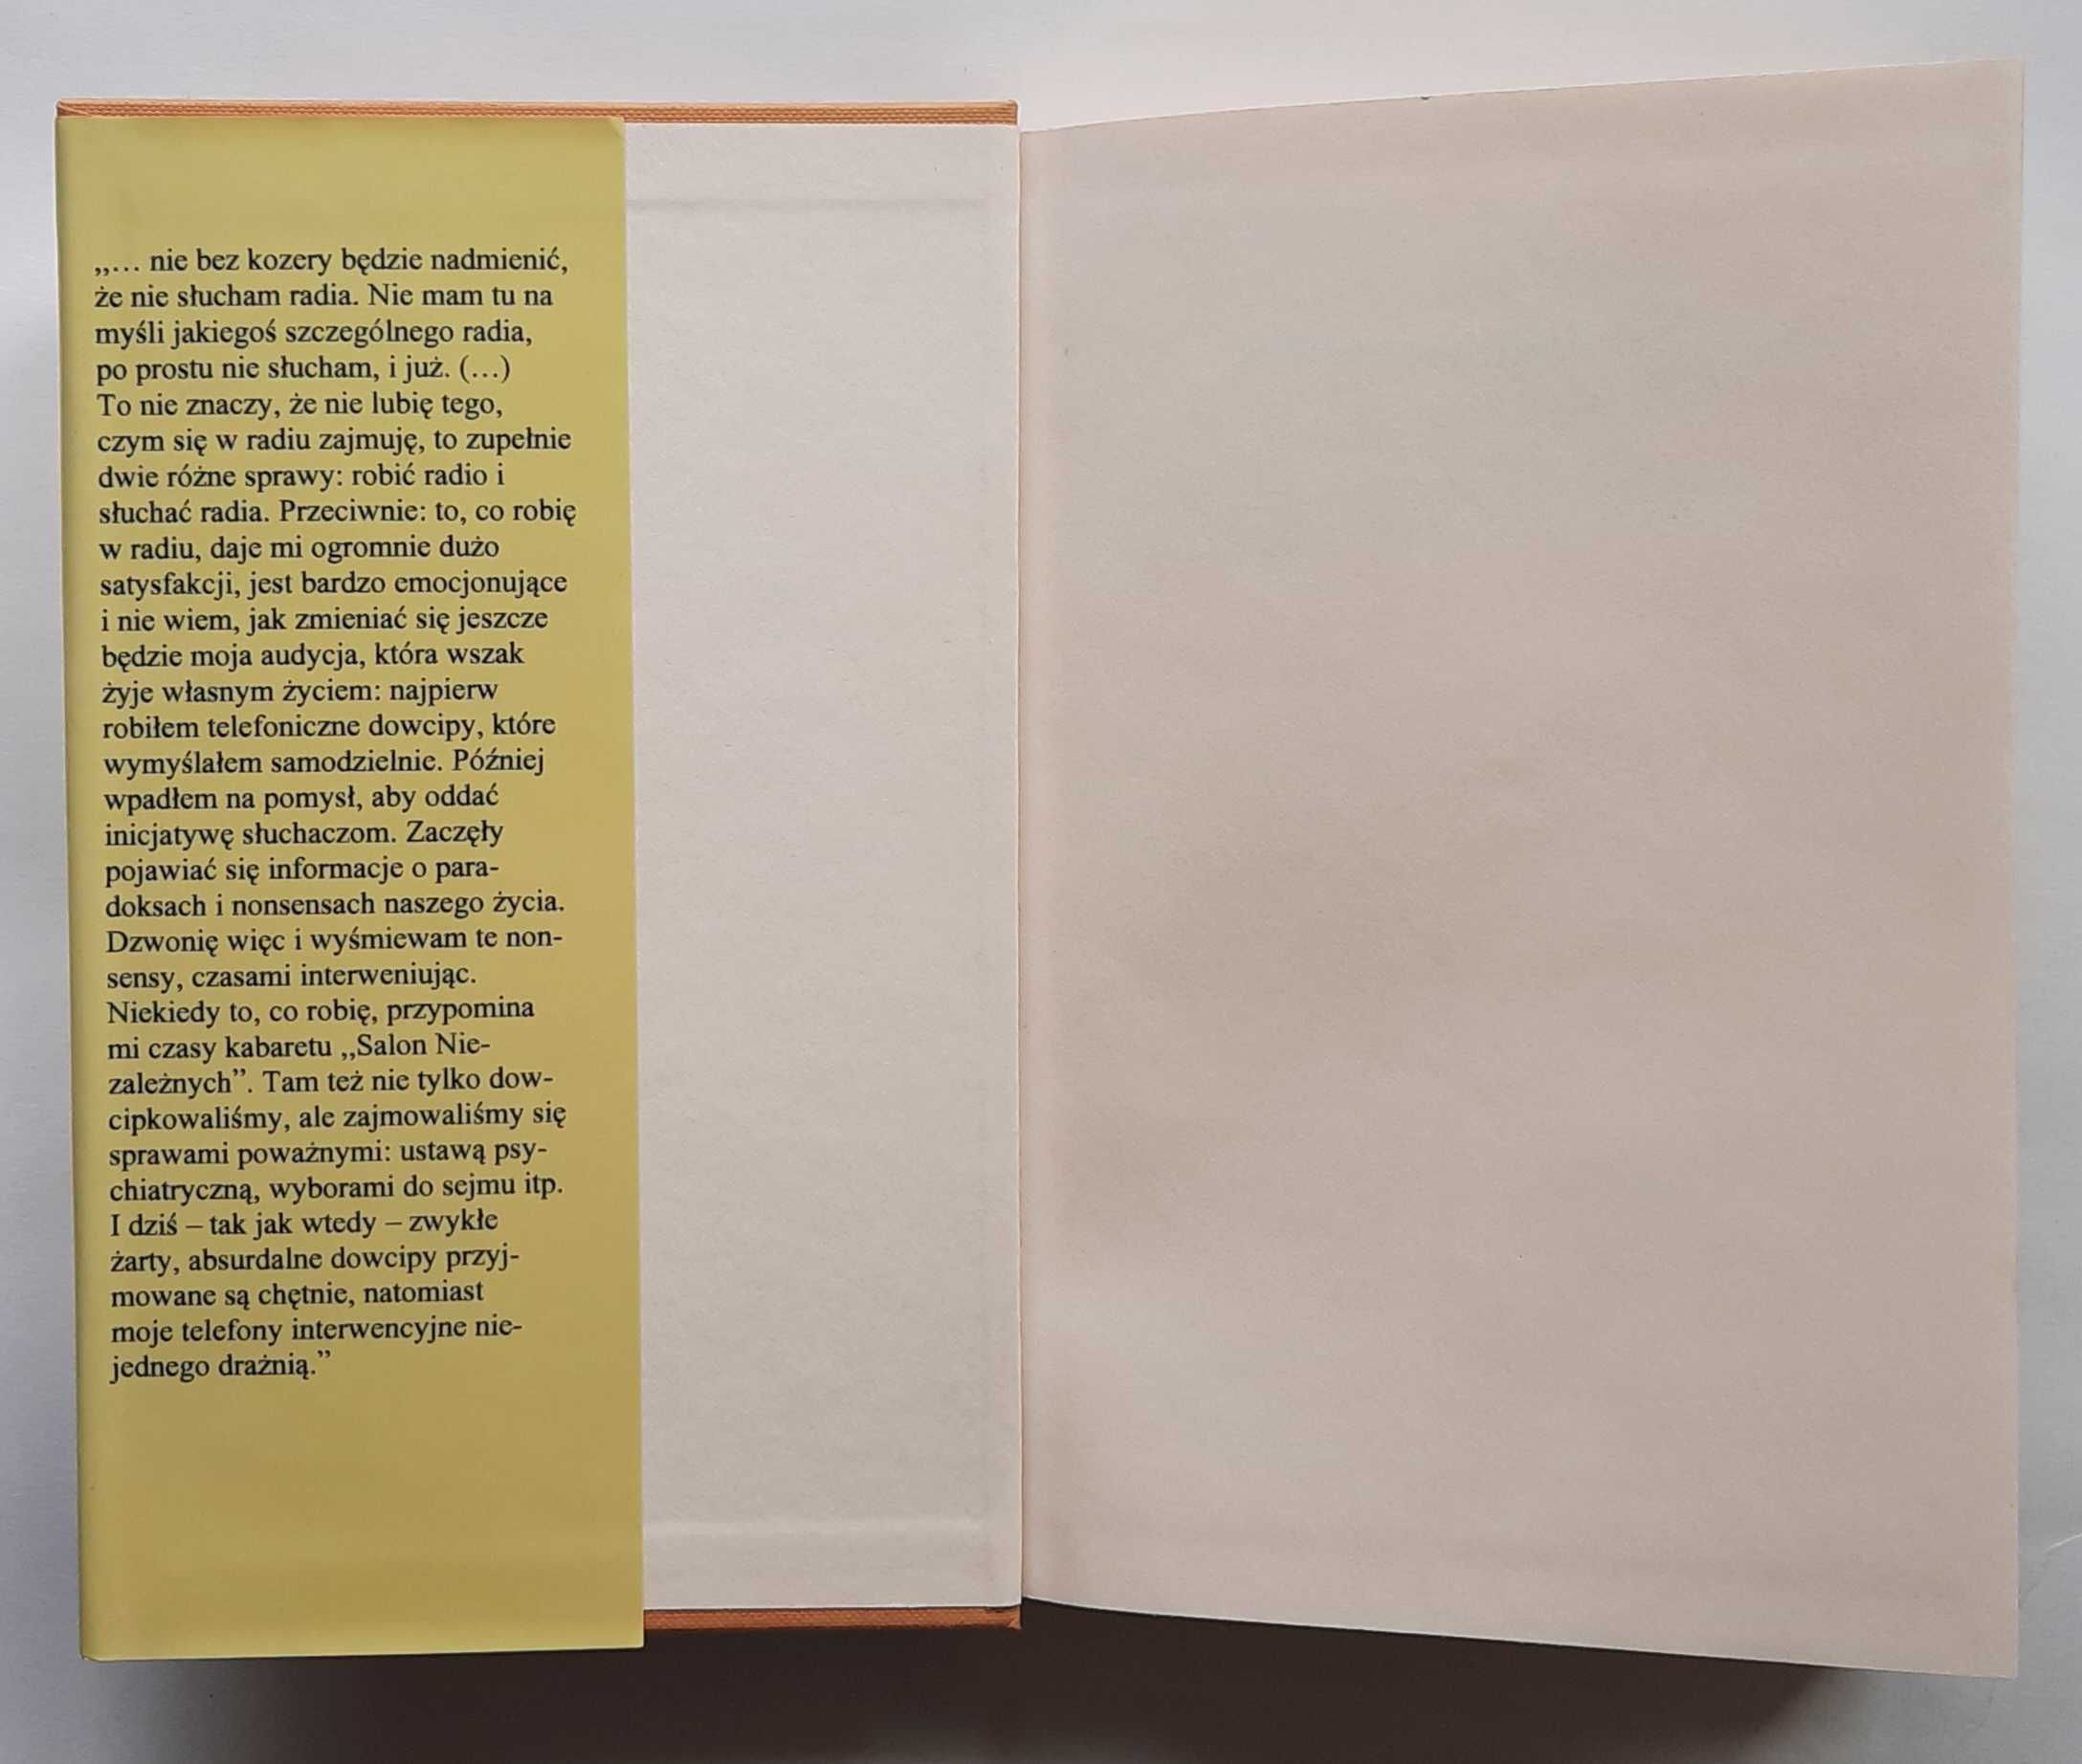 „… nie bez kozery będzie nadmienić,
że nie słucham radia. Nie mam tu na
myśli jakiegoś szczególnego radia,
po prostu nie słucham, i już. (…)
To nie znaczy, że nie lubię tego,
czym się w radiu zajmuję, to zupełnie
dwie różne sprawy: robić radio i
słuchać radia. Przeciwnie: to, co robię
w radiu, daje mi ogromnie dużo
satysfakcji, jest bardzo emocjonujące
i nie wiem, jak zmieniać się jeszcze
będzie moja audycja, która wszak
żyje własnym życiem: najpierw
robiłem telefoniczne dowcipy, które
wymyślałem samodzielnie. Później
wpadłem na pomysł, aby oddać
inicjatywę słuchaczom. Zaczęły
pojawiać się informacje o para-
doksach i nonsensach naszego życia.
Dzwonię więc i wyśmiewam te non-
sensy, czasami interweniując.
Niekiedy to, co robię, przypomina
mi czasy kabaretu „Salon Nie-
zależnych”. Tam też nie tylko dow-
cipkowaliśmy, ale zajmowaliśmy się
sprawami poważnymi: ustawą psy-
chiatryczną, wyborami do sejmu itp.
I dziś – tak jak wtedy – zwykłe
żarty, absurdalne dowcipy przyj-
mowane są chętnie, natomiast
moje telefony interwencyjne nie-
jednego drażnią.”